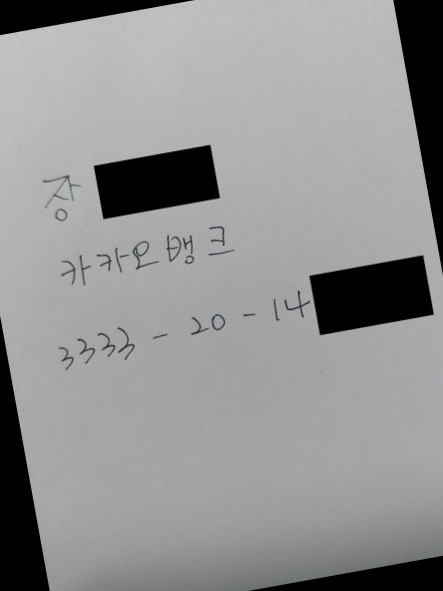 장
카카오뱅크
3333-20-14